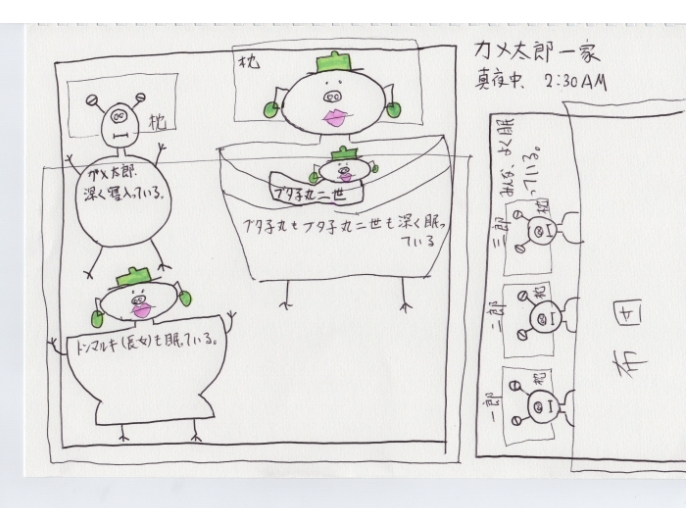 カメ太郎一家
真夜中、2:30AM
枕
枕
カメ太郎、
深く寝入っている。
ブタ子丸二世
ブタ子丸もブタ子丸二世も深く眠っ
ている
トンマルキ(長女)も眠っている。
みんな、よく眠
っている。
三郎
枕
二郎
枕
一郎
枕
布団